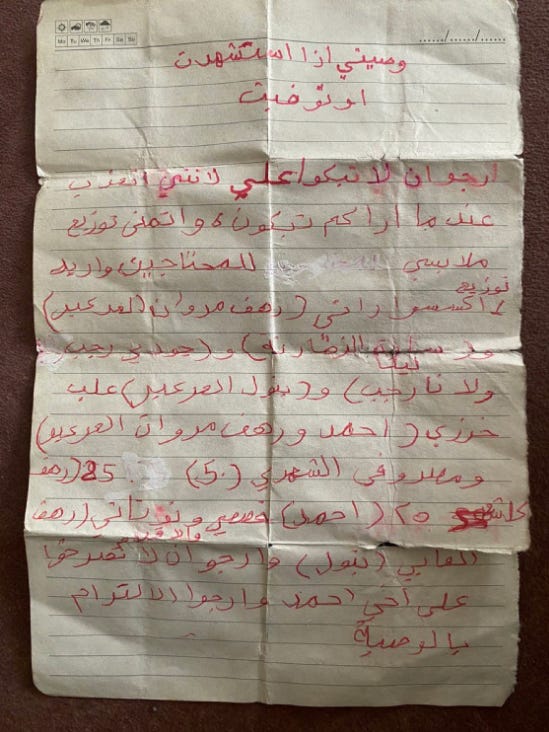 Mo Tu We Th Fr Sa Su
....../....../......
وصيتي إذا استشهدت
او توفيت
ارجو ان لا تبكوا علي لانني اتعذب
عندما اراكم تبكون و اتمنى توزيع
ملابسي للمحتاجين واريد
توزيع
اكسسواراتي (رهف مروان العرعير)
و( النصاريه) و(جودي رجب)
لينا
ولانا رجب) و(بتول العرعير) علب
خرزي (احمد ورهف مروان العرعير)
ومصروفي الشهري (50) 25 (رهف
25 (احمد) قصصي و نوتاتي (رهف)
العابي (بتول) وارجو ان لا تصرخوا
على اخي احمد وارجوا الالتزام
بالوصية